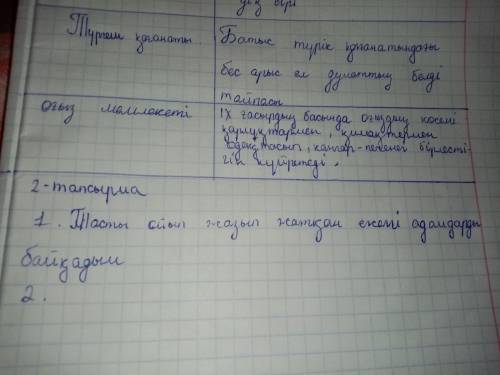 дің бірі
Түргеш қағанаты. Батыс түрік қағанатындағы
бес арыс ел дулаттың белді
тайпасы
оғыз мемлекеті IX ғасырдың басында оғыздың көсемі
қарлұқтармен, қимақтермен
одақтасып, кангар-печенег бірлесті-
гін күйретеді.
2-тапсырма
1. Тасты ойып жазып жатқан екені адамдарды
байқадым
2.